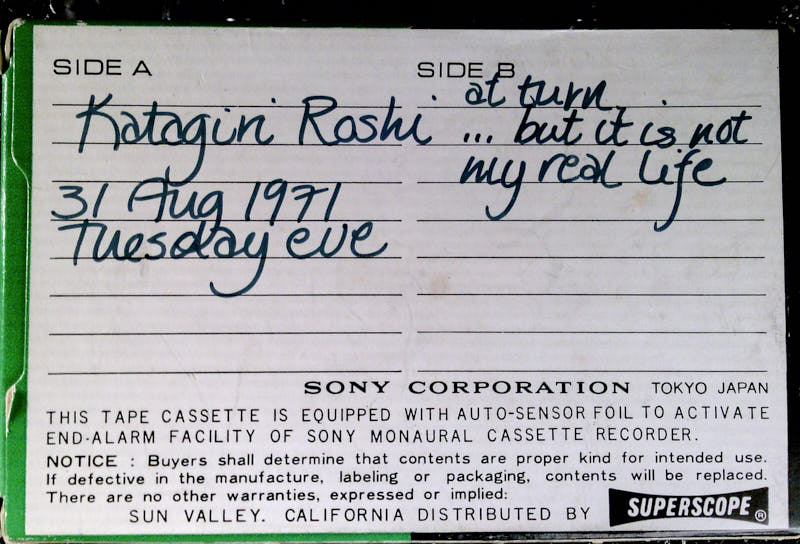 SIDE A
Katagiri Roshi
31 Aug 1971
Tuesday eve
SIDE B
at turn
... but it is not
my real life
SONY CORPORATION TOKYO JAPAN
THIS TAPE CASSETTE IS EQUIPPED WITH AUTO-SENSOR FOIL TO ACTIVATE
END-ALARM FACILITY OF SONY MONAURAL CASSETTE RECORDER.
NOTICE : Buyers shall determine that contents are proper kind for intended use.
If defective in the manufacture, labeling or packaging, contents will be replaced.
There are no other warranties, expressed or implied:
SUN VALLEY. CALIFORNIA DISTRIBUTED BY SUPERSCOPE®